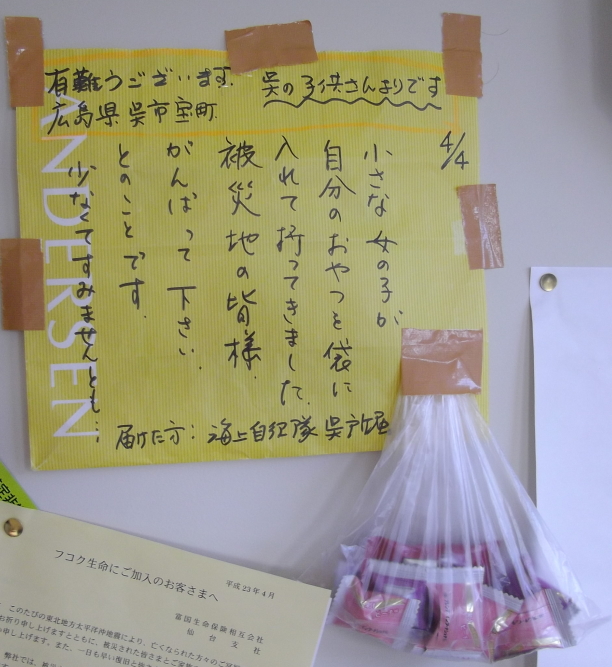 有難うございます.
呉の子供さんよりです
広島県呉市宝町
4/4
小さな女の子が
自分のおやつを袋に
入れて持ってきました.
被災地の皆様.
がんばって下さい.
とのことです.
少なくてすみませんとも…
届けた方：海上自衛隊 呉
ANDERSEN
フコク生命にご加入のお客さまへ
平成23年4月
富国生命保険相互会社
仙台支社
このたびの東北地方太平洋沖地震により、亡くなられた方々のご
お祈り申し上げますとともに、被災された皆さまと
申し上げます。また、一日も早い復旧と